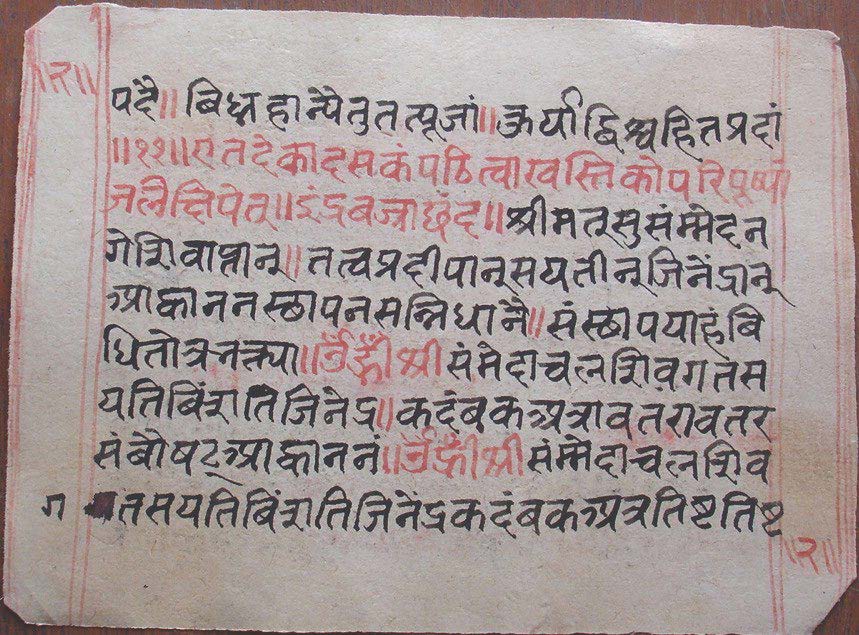 ॥२॥
पदैः॥ बिघ्नहान्यैतुतत्पूजां॥कुर्याद्विश्वहितप्रदां
॥११॥एतदेकादसकंपठित्वास्वस्तिकोपरिपूष्पां
जलैक्षिपेत्॥इंद्रबज्राछंद॥श्रीमत्सुसंम्मेदन
गेशिवाप्तान्॥तत्वप्रदीपान्सयतीन्जिनेंद्रान्
आह्वाननस्छापनसन्निधानैः॥संस्छापयाहंबि
धितोत्रभक्त्या॥ॐह्रीँश्रीसंमेदाचलशिवगतस
यतिबिंशतिजिनेद्र॥कदंबकअत्रावतरावतर
संबौषट्आह्वाननं॥ॐह्रीँश्रीसंम्मेदाचलशिव
ग तसयतिबिंशतिजिनेंद्रकदंबकअत्रतिष्टतिष्ट
॥२॥